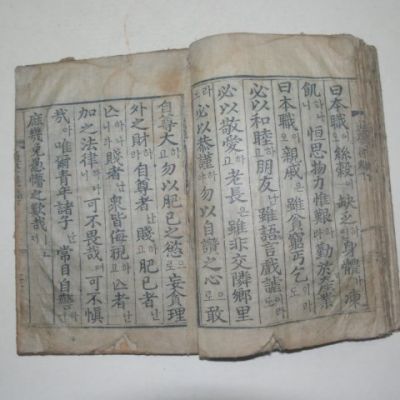 曰本職이 絲穀이 缺乏 身體가 凍
飢하나니 恒思物力惟艱하야 勤於產業
曰本職이오 親戚은 雖貧窮丐乞이라도
必以和睦고 朋友난 雖語言戲謔이라도
必以敬愛고 老長은 雖非交隣鄉里
라도 必以恭謹하라 勿以自讚之心으로 敢
自尊大고 勿以肥己之慾으로 妄貪理
外之財하라 自尊者난 賤하고 肥己者난
亡하나니 賤者난 衆皆侮 고 亡者난
加之法律하나니 可不畏哉며 可不懼
哉아 唯爾青年諸子난 常自自警하야
庶幾免愚懵之歎哉